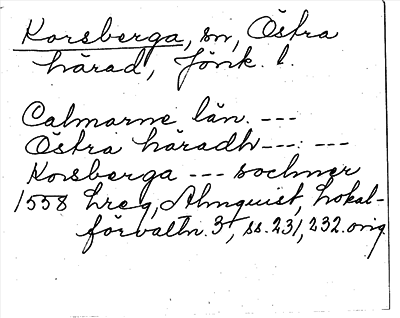 Korsberga, sn, Östra
härad, Jönk. l.
Calmarne län. ---
Östra häradh --- ---
Korsberga --- sochner
1558 hreg, Almquist, Lokal-
förvaltn. 3, ss. 231, 232. orig.